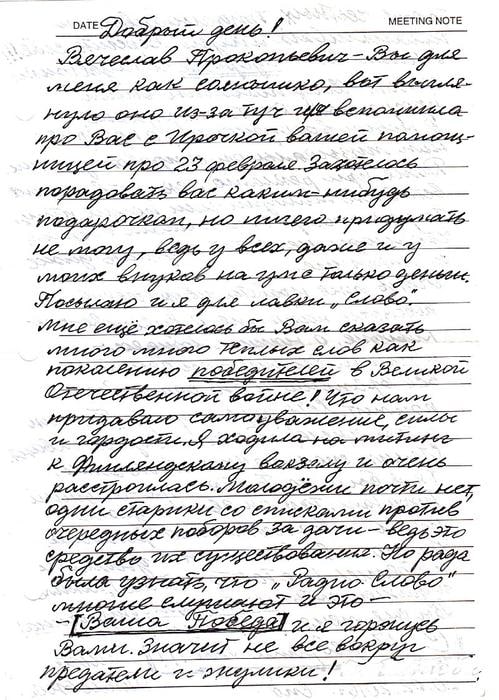 DATE Добрый день! MEETING NOTE
Вячеслав Прокопьевич – Вы для
меня как солнышко, вот выгля-
нуло оно из-за туч и я вспомнила
про Вас с Ирочкой вашей помощ-
ницей про 23 февраля. Захотелось
порадовать вас каким-нибудь
подарочкам, но ничего придумать
не могу, ведь у всех, даже и у
моих внуков на уме только деньги.
Посылаю и я для лавки „Слово".
Мне ещё хотелось бы Вам сказать
много много тёплых слов как
поколению победителей в Великой
Отечественной войне! Что нам
придавало самоуважение, силы
и гордости. Я ходила на митинг
к Финляндскому вокзалу и очень
расстроилась. Молодёжи почти нет,
одни старики со списками против
очередных поборов за дачи – ведь это
средство их существование. Но рада
была узнать, что „Радио Слово"
многие слушают и это –
– [Ваша Победа] и я горжусь
Вами. Значит не все вокруг
предатели и жулики!